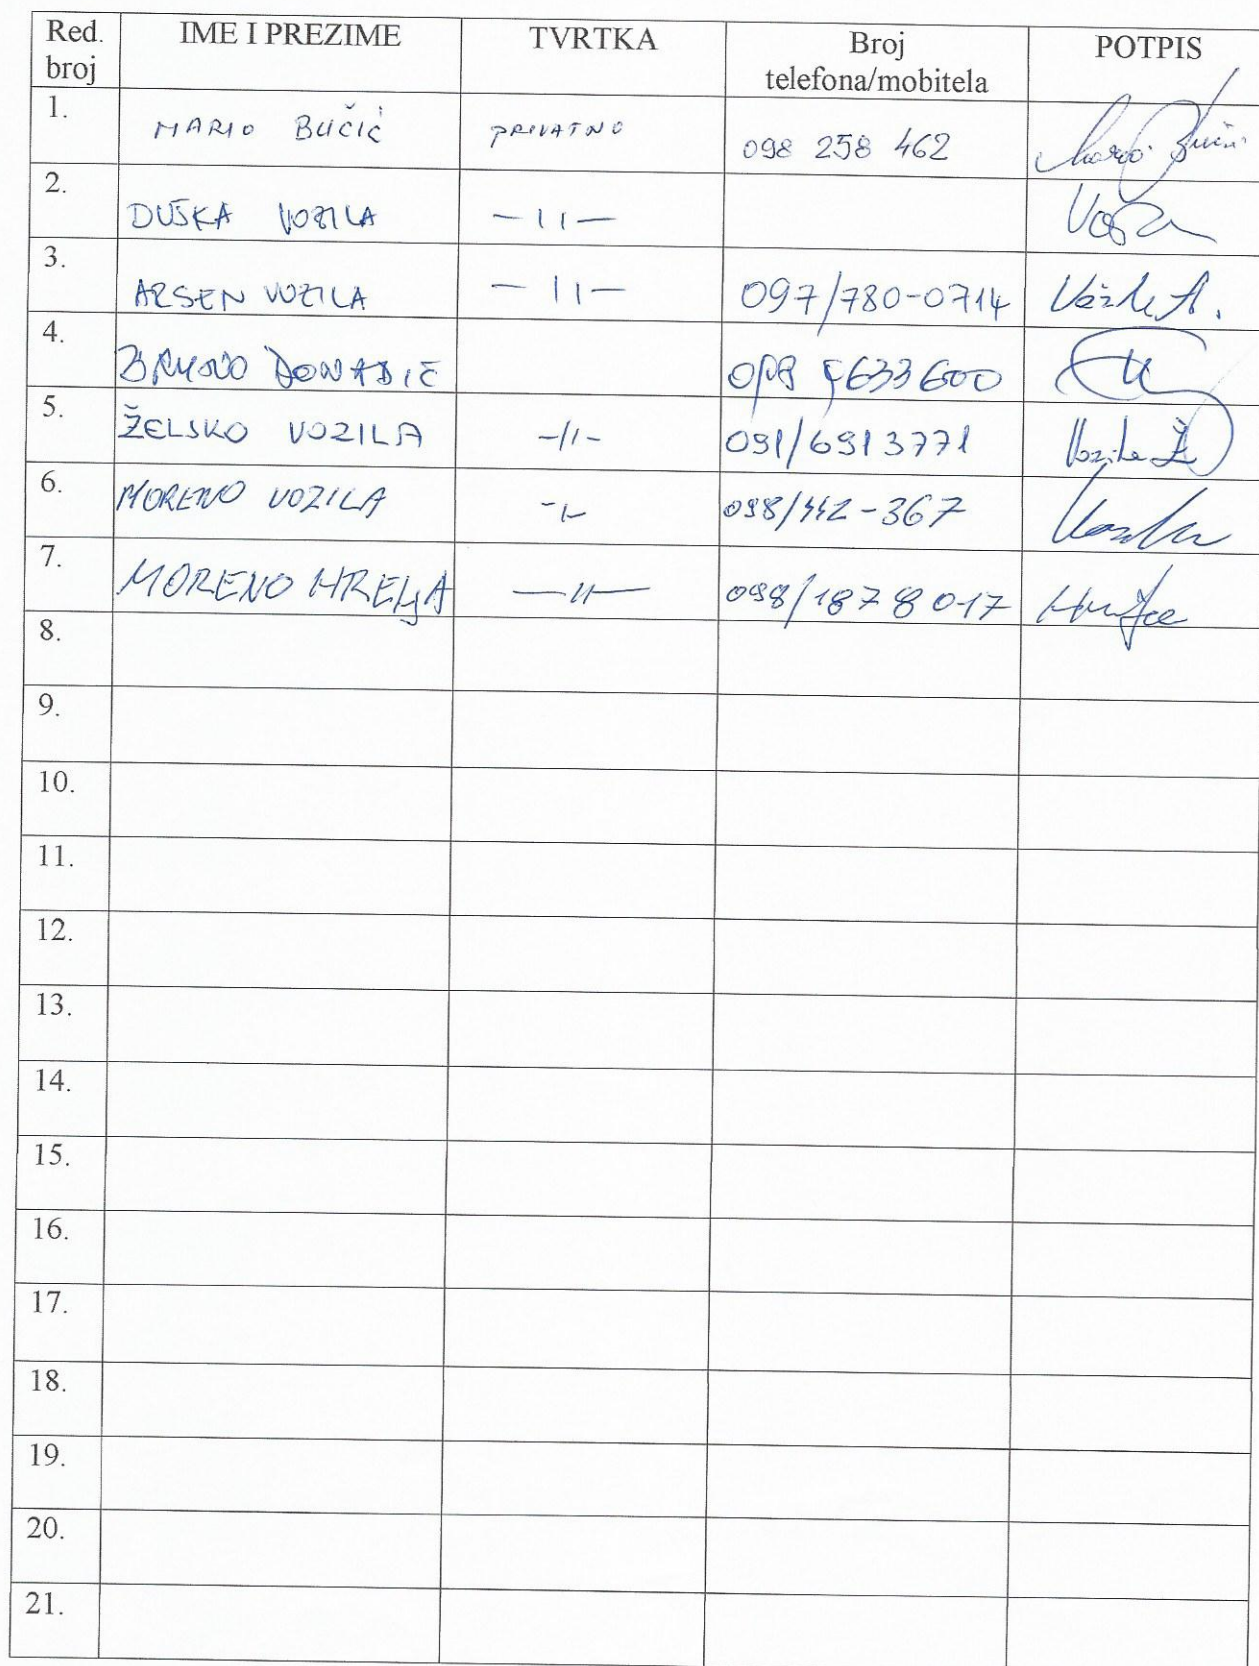 Red. broj IME I PREZIME TVRTKA Broj telefona/mobitela POTPIS
1. MARIO BUČIĆ PRIVATNO 098 258 462
2. DUŠKA VOZILA —11—
3. ARSEN VOZILA —11— 097/780-0714 Vozila A.
4. BRUNO DONADIĆ
5. ŽELJKO VOZILA -//- 091/6913771 Vozila Ž
6. MORENO VOZILA 098/442-367
7. MORENO HRELJA —11— 098/1878017
8.
9.
10.
11.
12.
13.
14.
15.
16.
17.
18.
19.
20.
21.